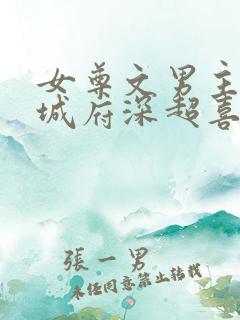 女尊文男主
城府深超喜
張一男
未经同意禁止转载